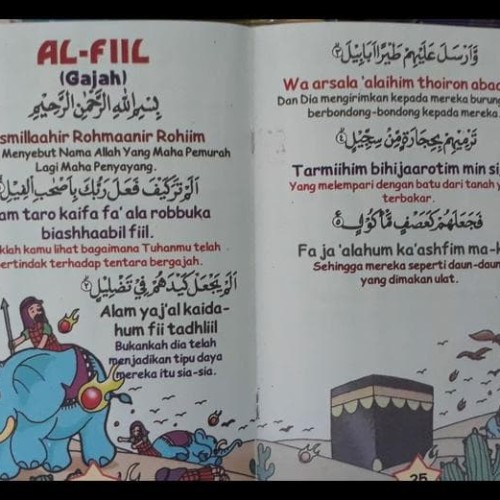 AL-FIIL
(Gajah)
بِسْمِ اللهِ الرَّحْمٰنِ الرَّحِيْمِ
smillaahir Rohmaanir Rohiim
Menyebut Nama Allah Yang Maha Pemurah
Lagi Maha Penyayang.
اَلَمْ تَرَ كَيْفَ فَعَلَ رَبُّكَ بِاَصْحٰبِ الْفِيْلِ
am taro kaifa fa'ala robbuka
biashhaabil fiil.
klah kamu lihat bagaimana Tuhanmu telah
ertindak terhadap tentara bergajah.
اَلَمْ يَجْعَلْ كَيْدَهُمْ فِيْ تَضْلِيْلٍ ٢
Alam yaj'al kaida-
hum fii tadhliil
Bukankah dia telah
menjadikan tipu daya
mereka itu sia-sia.
وَّاَرْسَلَ عَلَيْهِمْ طَيْرًا اَبَابِيْلَ ٣
Wa arsala 'alaihim thoiron abaa
Dan Dia mengirimkan kepada mereka burung
berbondong-bondong kepada mereka
تَرْمِيْهِمْ بِحِجَارَةٍ مِّنْ سِجِّيْلٍ ٤
Tarmiihim bihijaarotim min si
Yang melempari dengan batu dari tanah y
terbakar.
فَجَعَلَهُمْ كَعَصْفٍ مَّأْكُوْلٍ ٥
Fa ja'alahum ka'ashfim ma-k
Sehingga mereka seperti daun-daun
yang dimakan ulat.
25